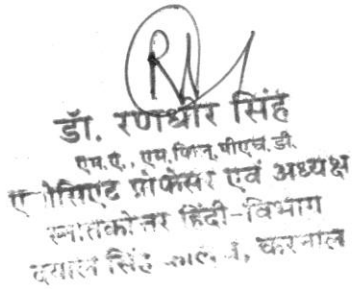 डॉ. रणधीर सिंह
एम.ए., एम.फिल, पीएच.डी.
एसोसिएट प्रोफेसर एवं अध्यक्ष
स्नातकोत्तर हिंदी-विभाग
दयाल सिंह कालेज, करनाल